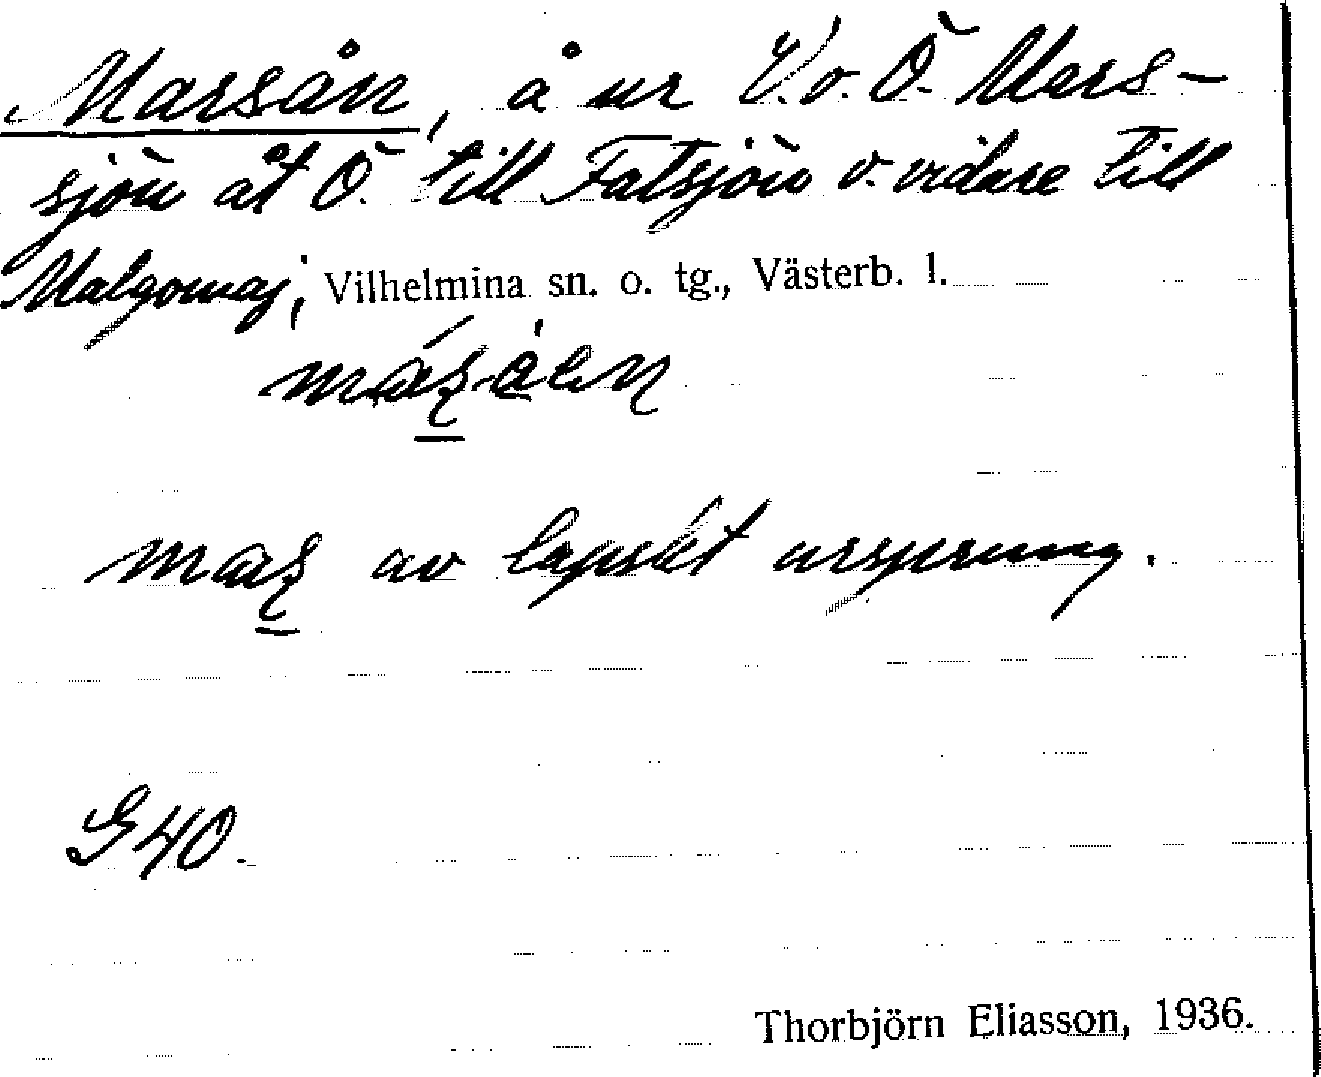 Marsån, å ur V. o. Ö. Mars-
sjön åt Ö. till Fatsjön o. vidare till
Malgomaj, Vilhelmina sn. o. tg., Västerb. l.
av lapskt ursprung.
G 40.
Thorbjörn Eliasson, 1936.